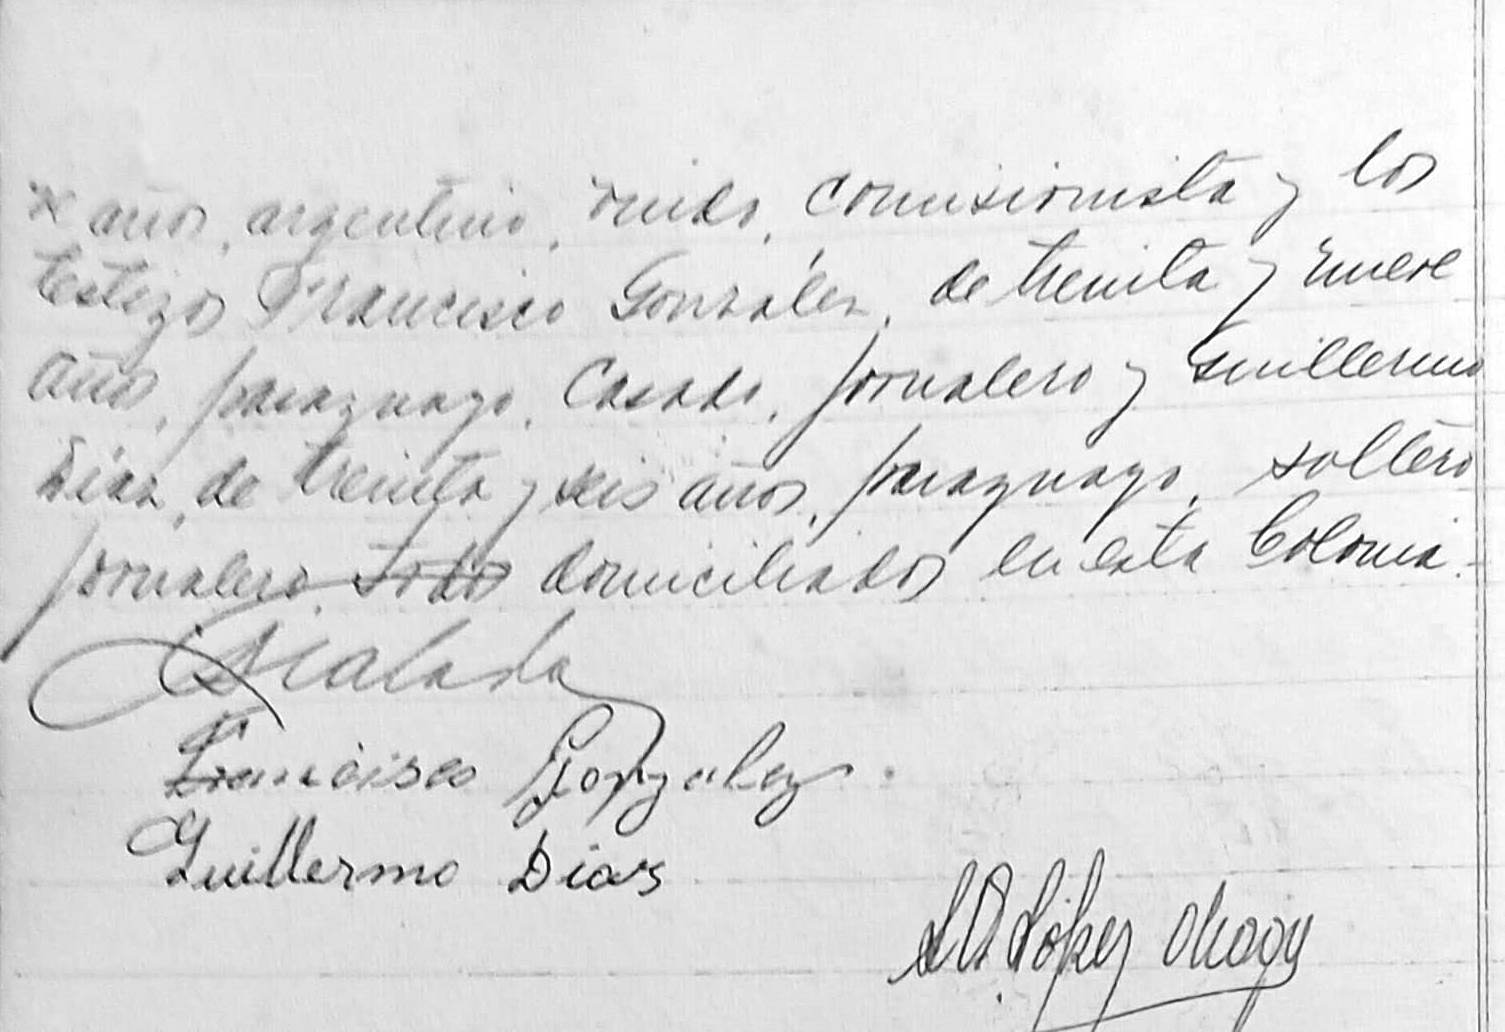 años, argentino, viudo, comisionista y los
testigos Francisco González, de treinta y nueve
años, paraguayo, casado, jornalero y Guillermo
Díaz, de treinta y seis años, paraguayo, soltero
jornalero, todos domiciliados en esta Colonia.
Francisco Gonzalez.
Guillermo Dias
López